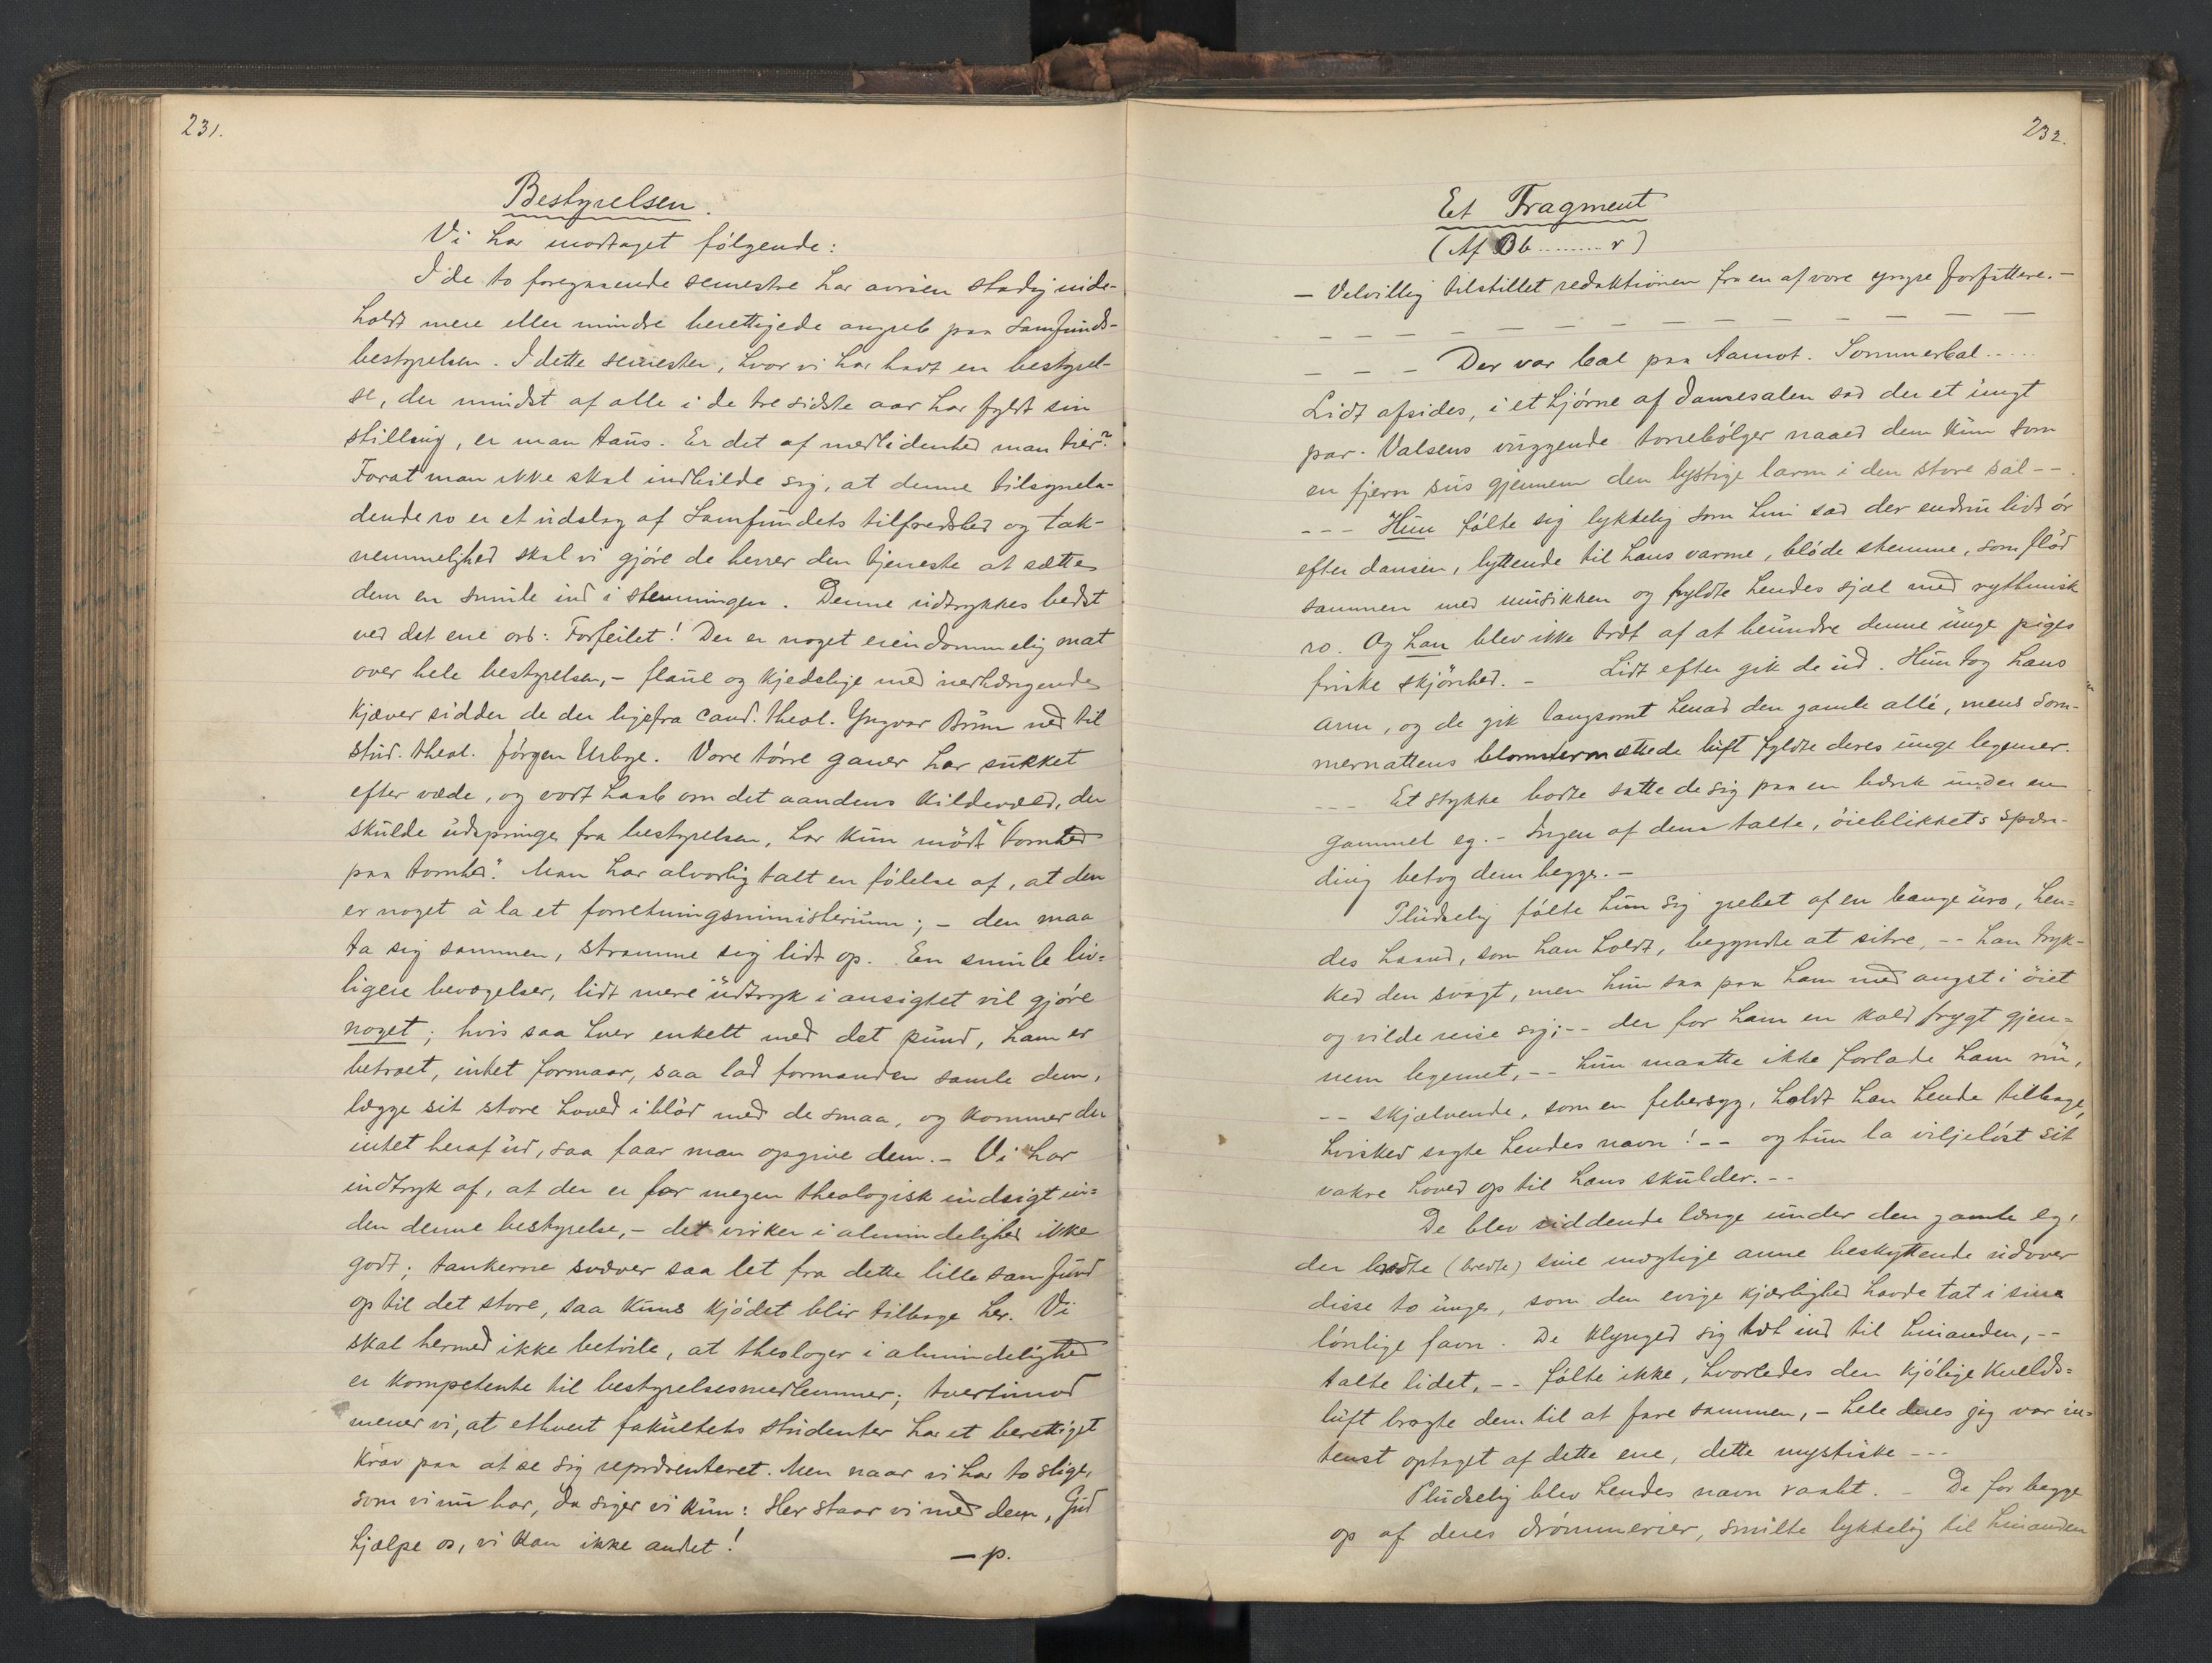 231.
Bestyrelsen.
Vi har modtaget følgende:
I de to foregaaende semestre har avisen stadig inde-
holdt mere eller mindre berettigede angreb paa Samfunds-
bestyrelsen. I dette semester, hvor vi har havt en bestyrel-
se, der mindst af alle i de tre sidste aar har fyldt sin
stilling, er man taus. Er det af medlidenhed man tier?
Forat man ikke skal indbilde sig, at denne tilsynela-
dende ro er et udslag af Samfundets tilfredshed og tak-
nemmelighed skal vi gjøre de herrer den tjeneste at sætte
dem en smule ind i stemningen. Denne udtrykkes bedst
ved det ene ord: Forfeilet! Der er noget eiendommelig mat
over hele bestyrelsen, – flaue og kjedelige med nedhængende
kjæver sidder de der ligefra cand. theol. Yngvar Brun ned til
stud. theol. Jørgen Urbye. Vore tørre ganer har sukket
efter væde, og vort haab om det aandens kildevæld, der
skulde udspringe fra bestyrelsen, har kun mødt "tomhed
paa tomhed". Man har alvorlig talt en følelse af, at den
er noget à la et forretningsministerium; – den maa
ta sig sammen, stramme sig lidt op. En smule liv-
ligere bevægelser, lidt mere udtryk i ansigtet vil gjøre
noget; hvis saa hver enkelt med det pund, ham er
betroet, intet formaar, saa lad formanden samle dem,
lægge sit store hoved i blød med de smaa, og kommer der
intet heraf ud, saa faar man opgive dem. – Vi har
indtryk af, at der er for megen theologisk indsigt in-
den denne bestyrelse, – det virker i almindelighed ikke
godt; tankerne svæver saa let fra dette lille samfund
op til det store, saa kuns kjødet blir tilbage her. Vi
skal hermed ikke betvile, at theologer i almindelighed
er kompetente til bestyrelsesmedlemmer; tvertimod
mener vi, at ethvert fakultets studenter har et berettiget
krav paa at se sig repræsenteret. Men naar vi har to slige,
som vi nu har, da siger vi kun: Her staar vi med dem, Gud
hjælpe os, vi kan ikke andet!
– p.
232.
Et Fragment
(Af Bb........r)
– Velvillig tilstillet redaktionen fra en af vore yngre forfattere. –
– – – – – – – – – – – – –
– – – Der var bal paa Aamot. Sommerbal.....
Lidt afsides, i et hjørne af dansesalen sad der et ungt
par. Valsens vuggende tonebølger naaed dem kun som
en fjern sus gjennem den lystige larm i den store sal – –.
– – – Hun følte sig lykkelig som hun sad der endnu lidt ør
efter dansen, lyttende til hans varme, bløde stemme, som flød
sammen med musikken og fyldte hendes sjæl med rythmisk
ro. Og han blev ikke træt af at beundre denne unge piges
friske skjønhed. – Lidt efter gik de ud. Hun tog hans
arm, og de gik langsomt henad den gamle allé, mens som-
mernattens blomstermættede luft fyldte deres unge legemer.
– – – Et stykke borte satte de sig paa en bænk under en
gammel eg. – Ingen af dem talte, øieblikkets spæn-
ding betog dem begge. –
Pludselig følte hun sig grebet af en bange uro, hen-
des haand, som han holdt, begyndte at sitre, – – han tryk-
ked den svagt, men hun saa paa ham med angst i øiet
og vilde reise sig; – – der for ham en kold frygt gjen-
nem legemet, – – hun maatte ikke forlade ham nu,
– – skjælvende, som en febersyg, holdt han hende tilbage,
hvisked sagte hendes navn! – – og hun la viljeløst sit
vakre hoved op til hans skulder. – –
De blev siddende længe under den gamle eg,
der bredte (bredte) sine mægtige arme beskyttende udover
disse to unge, som den evige kjærlighed havde tat i sine
lønlige favn. De klynged sig tæt ind til hinanden, – –
talte lidet, – – følte ikke, hvorledes den kjølige kvelds-
luft bragte dem til at fare sammen, – hele deres jeg var in-
tenst optaget af dette ene, dette mystiske – – –
Pludselig blev hendes navn raabt. – De for begge
op af deres drømmerier, smilte lykkelig til hinanden